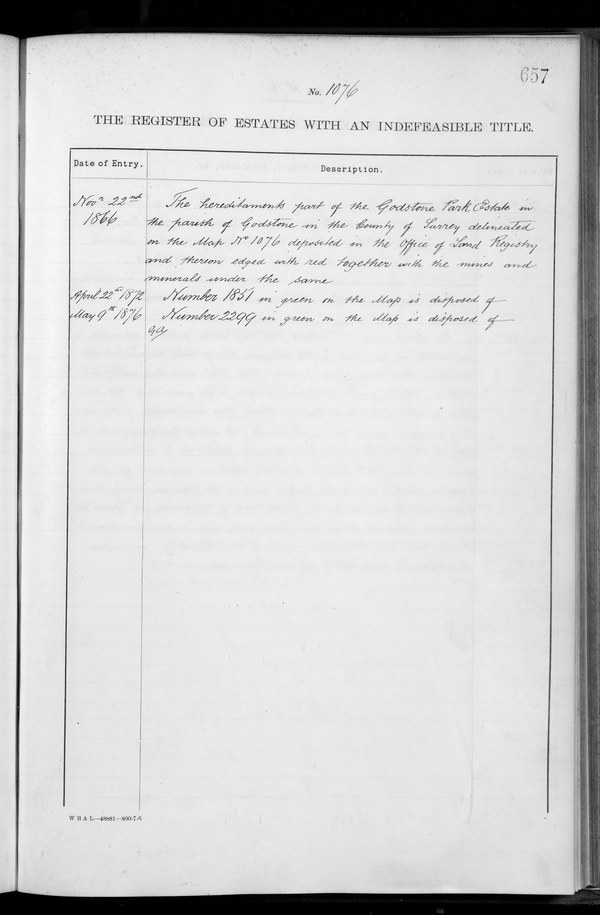 657
No. 1076
THE REGISTER OF ESTATES WITH AN INDEFEASIBLE TITLE.
Date of Entry. Description.
Novr 22nd The hereditaments part of the Godstone Park Estate in
1866 the parish of Godstone in the County of Surrey delineated
on the Map No 1076 deposited in the Office of Land Registry
and thereon edged with red together with the mines and
minerals under the same
April 22nd 1872 Number 1851 in green on the Map is disposed of
May 9th 1876 Number 2299 in green on the Map is disposed of
W B & L—48881—800-7-6